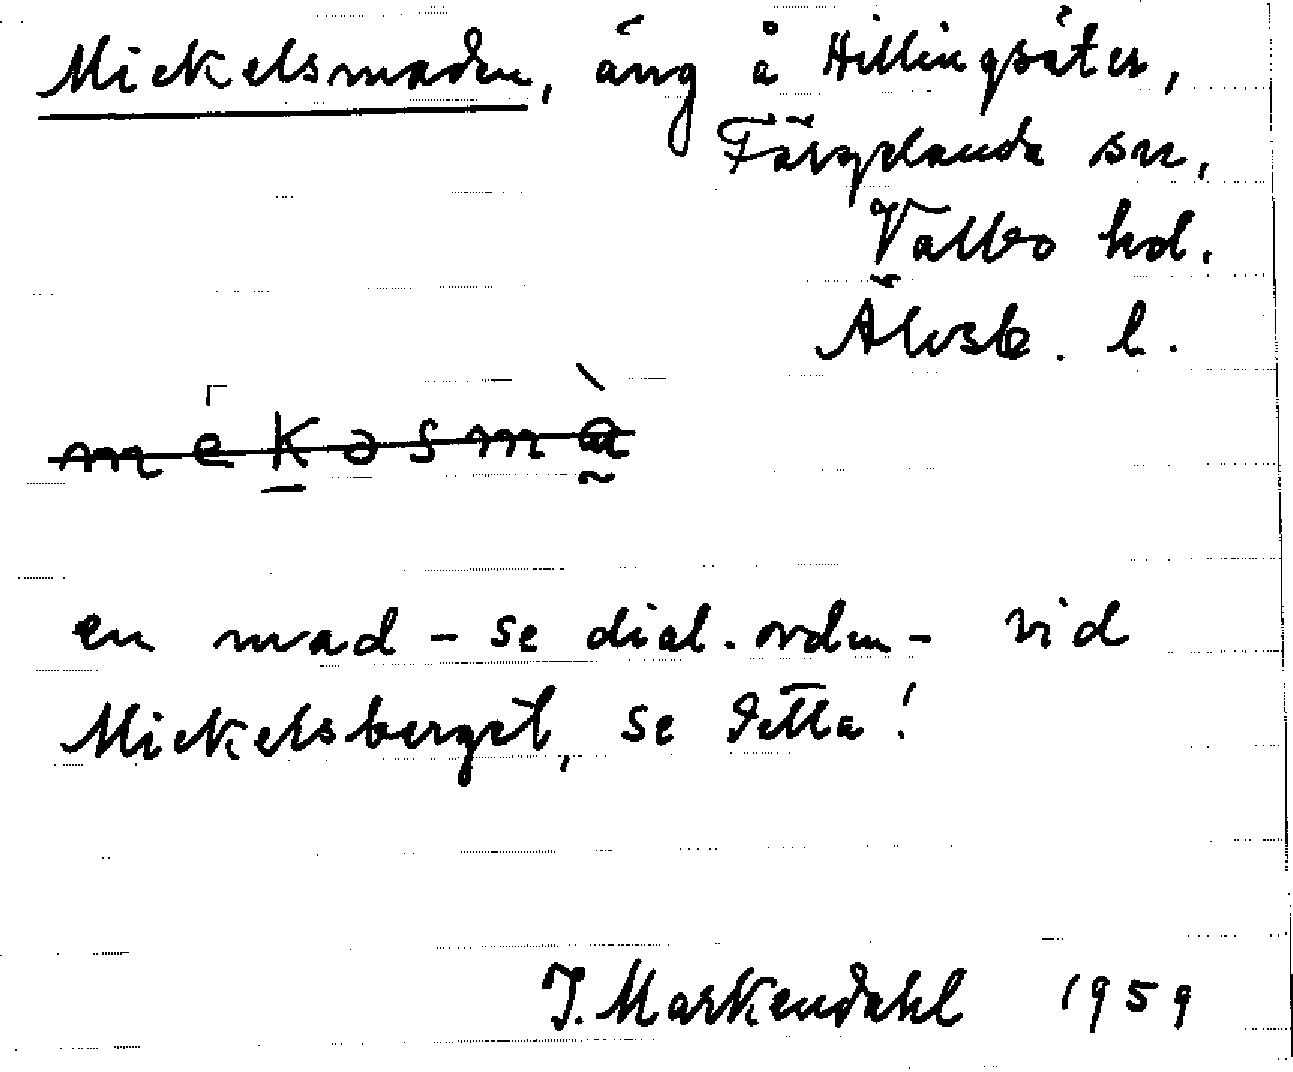 Mickelsmaden, äng å Hillingsäter,
Färgelanda sn,
Valbo hd.
Älvsb. l.
mekəsmà
en mad – se dial. orden – vid
Mickelsberget, se detta!
J. Markendahl 1959